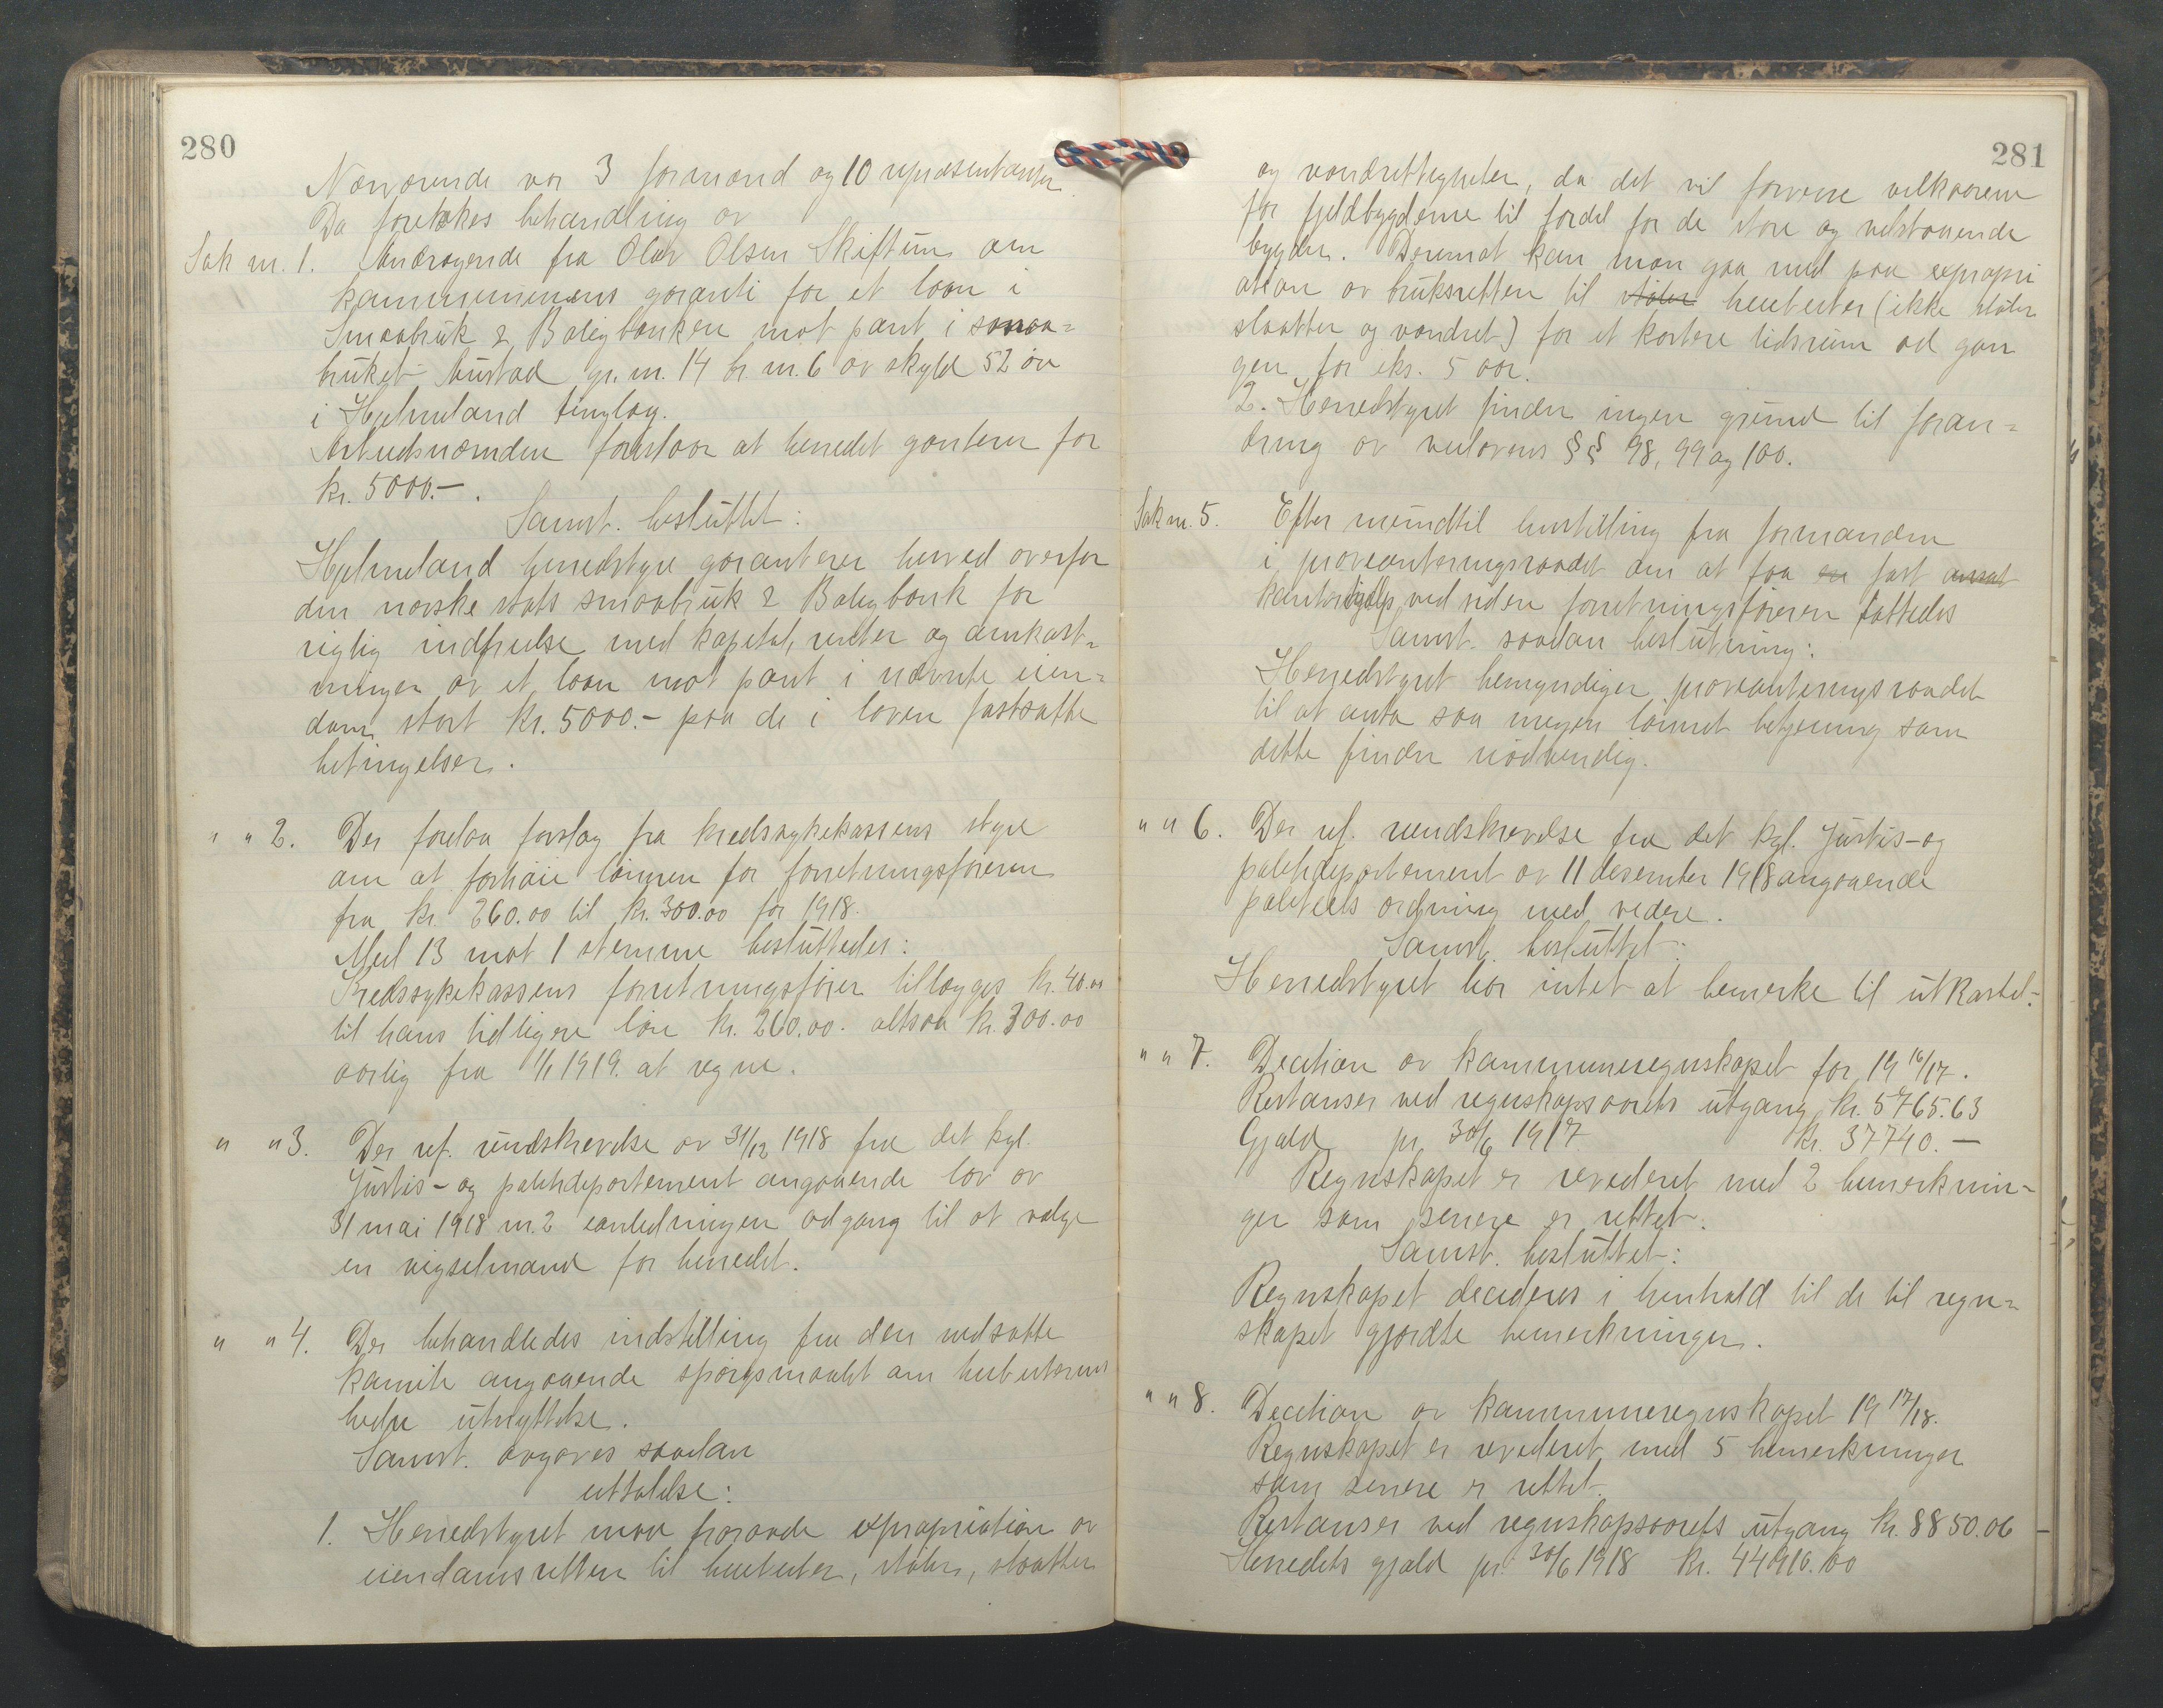 280
Nærværende var 3 formænd og 10 repræsentanter
Da foretokes behandling av
Sak nr. 1. Andragende fra Olav Olsen Skiftun om
kommunenens garanti for et laan i
Smaabruk & Boligbanken mot pant i smaa=
bruket Austad gr. nr. 14 br. nr. 6 av skyld 52 øre
i Hjelmeland tinglag.
Arbeidsnæmden foreslaar at herredet garanterer for
kr. 5000.-.
Samst. besluttet:
Hjelmeland herredstyre garanterer herved overfor
den norske stats smaabruk & Boligbank for
rigtig indfrielse med kapital, renter og omkost=
ninger av et laan mot pant i nævnte eien=
dom stort kr. 5000.- paa de i loven fastsatte
betingelser.
" " 2. Der forelaa forslag fra kredssykekassens styre
om at forhøie lønnen for forretningsføreren
fra kr. 260.00 til kr. 300.00 for 1918.
Med 13 mot 1 stemme besluttedes:
Kredssykekassens forretningsfører tillægges kr. 40.00
til hans tidligere løn kr. 260.00. altsaa kr. 300.00
aarlig fra 1/1 1919. at regne.
" " 3. Der ref. rundskrivelse av 31/12 1918 fra det kgl.
Justis- og politidepartement angaaende lov av
31 mai 1918 nr. 2 adgang til at vælge
en vigselmand for herredet.
" " 4. Der behandledes indstilling fra den nedsatte
komite angaaende spørgsmaalet om heieuternes
bedre utnyttelse.
Samst. avgaves saadan
uttalelse:
1. Herredstyret maa fraraade expropriation av
eiendomsretten til heieuter, støler, slaatter
281
og vandrettigheter, da det vil forverre vilkaarene
for fjeldbygderne til fordel for de store og velstaaende
bygder. Derimot kan man gaa med paa expropri
ation av bruksretten til støler heieuter (ikke støler
slaatter og vandret) for et kortere tidsrum ad gan
gen for eks. 5 aar.
2. Herredstyret finder ingen grund til foran=
dring av veilovens §§ 98, 99 og 100.
Sak nr. 5. Efter mundtil henstilling fra formanden
i provianteringsraadet om at faa en fast ansat
kontorhjelp ved siden forretningsføreren fattedes
Samst. saadan beslutning:
Herredstyret bemyndiger provianteringsraadet
til at anta saa megen lønnet betjening som
dette finder nødvendig.
" " 6. Der ref. rundskrivelse fra det kgl. Justis- og
politidepartement av 11 desember 1918 angaaende
politiets ordning med videre.
Samst. besluttet:
Herredstyret har intet at bemerke til utkastet.
" " 7. Decition av kommuneregnskapet for 19 16/17.
Restanser ved regnskapsaarets utgang kr. 5765.63
Gjæld pr. 30/6 1917 kr. 37740.—
Regnskapet er revideret med 2 bemerknin-
ger som senere er rettet.
Samst. besluttet:
Regnskapet decideres i henhold til de til regn=
skapet gjordte bemerkninger.
" " 8. Decition av kommuneregnskapet 19 17/18.
Regnskapet er revideret med 5 bemerkninger
som senere er rettet.
Restanser ved regnskapsaarets utgang kr. 8850.06
Herredets gjæld pr. 30/6 1918 kr.